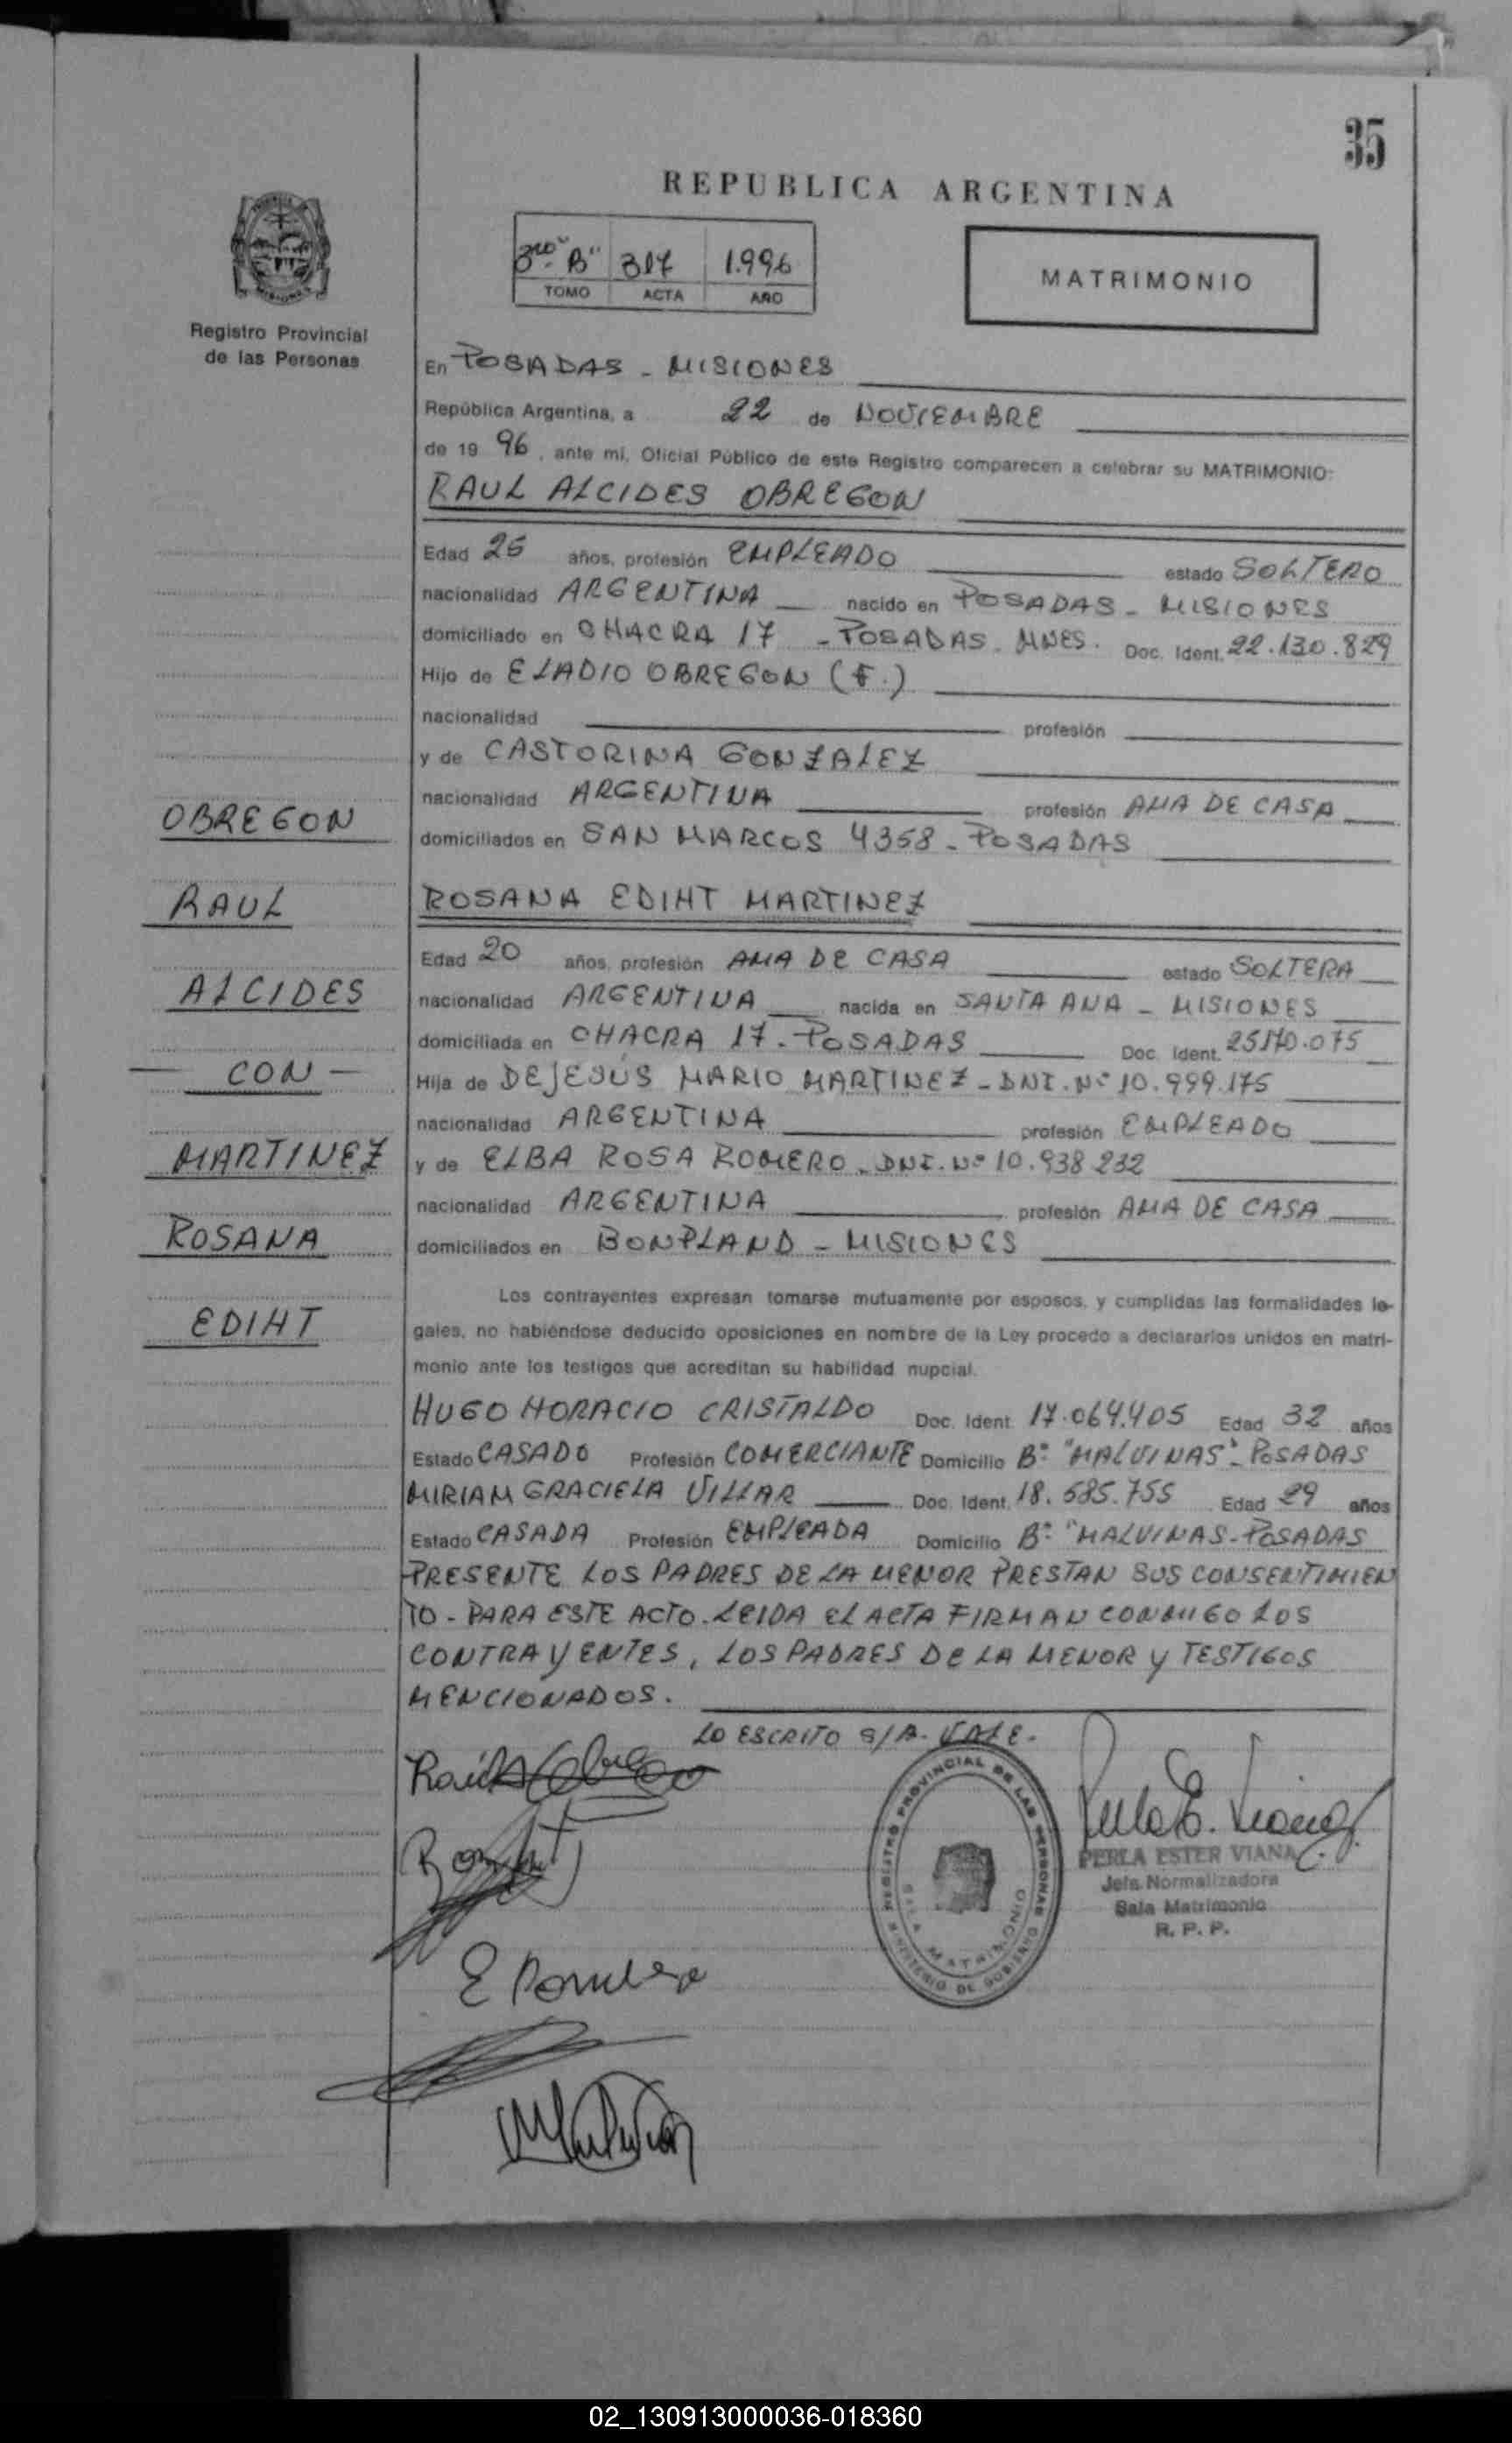 35
REPUBLICA ARGENTINA
3ro "B" 317 1.996
TOMO ACTA AÑO
MATRIMONIO
Registro Provincial
de las Personas
En POSADAS - MISIONES
República Argentina, a 22 de NOVIEMBRE
de 19 96, ante mí, Oficial Público de este Registro comparecen a celebrar su MATRIMONIO:
RAUL ALCIDES OBREGON
Edad 25 años, profesión EMPLEADO estado SOLTERO
nacionalidad ARGENTINA nacido en POSADAS - MISIONES
domiciliado en CHACRA 17 - POSADAS - MNES. Doc. Ident. 22.130.829
Hijo de ELADIO OBREGON (F.)
nacionalidad profesión
y de CASTORINA GONZALEZ
nacionalidad ARGENTINA profesión AMA DE CASA
domiciliados en SAN MARCOS 4358 - POSADAS
OBREGON
RAUL
ALCIDES
- CON -
MARTINEZ
ROSANA
EDIHT
ROSANA EDIHT MARTINEZ
Edad 20 años, profesión AMA DE CASA estado SOLTERA
nacionalidad ARGENTINA nacida en SANTA ANA - MISIONES
domiciliada en CHACRA 17 - POSADAS Doc. Ident. 25.170.075
Hija de DEJESÚS MARIO MARTINEZ - DNI. Nº 10.999.175
nacionalidad ARGENTINA profesión EMPLEADO
y de ELBA ROSA ROMERO - DNI. Nº 10.938.232
nacionalidad ARGENTINA profesión AMA DE CASA
domiciliados en BONPLAND - MISIONES
Los contrayentes expresan tomarse mutuamente por esposos, y cumplidas las formalidades le-
gales, no habiéndose deducido oposiciones en nombre de la Ley procedo a declararlos unidos en matri-
monio ante los testigos que acreditan su habilidad nupcial.
HUGO HORACIO CRISTALDO Doc. Ident. 17.064.405 Edad 32 años
Estado CASADO Profesión COMERCIANTE Domicilio Bº "MALVINAS" - POSADAS
MIRIAM GRACIELA VILLAR Doc. Ident. 18.585.755 Edad 29 años
Estado CASADA Profesión EMPLEADA Domicilio Bº "MALVINAS - POSADAS
PRESENTE LOS PADRES DE LA MENOR PRESTAN SUS CONSENTIMIEN
TO - PARA ESTE ACTO. LEIDA EL ACTA FIRMAN CONMIGO LOS
CONTRAYENTES, LOS PADRES DE LA MENOR Y TESTIGOS
MENCIONADOS.
LO ESCRITO S/A. VALE.
REGISTRO PROVINCIAL DE LAS PERSONAS
SALA MATRIMONIO
MINISTERIO DE GOBIERNO
Perla E. Viana
PERLA ESTER VIANA
Jefa Normalizadora
Sala Matrimonio
R. P. P.
E Romero
02_130913000036-018360